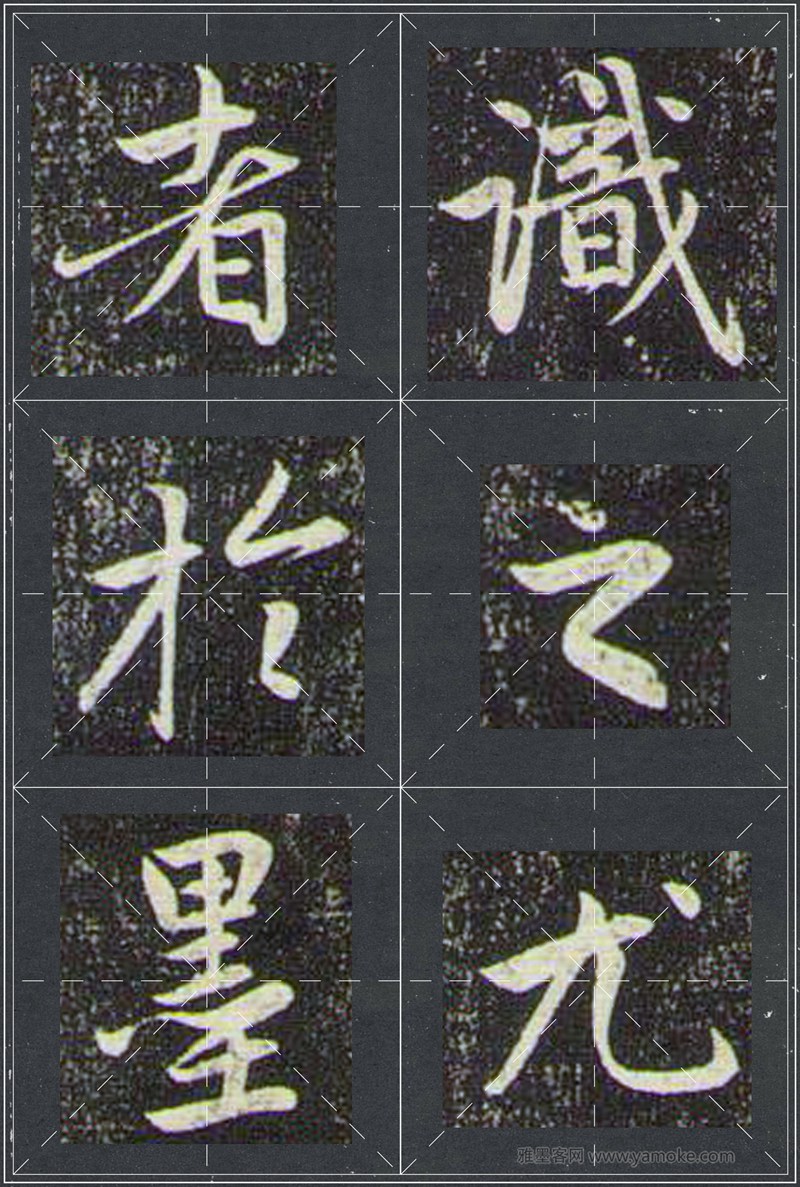 識之尤
者於墨
雅墨客网 www.yamoke.com